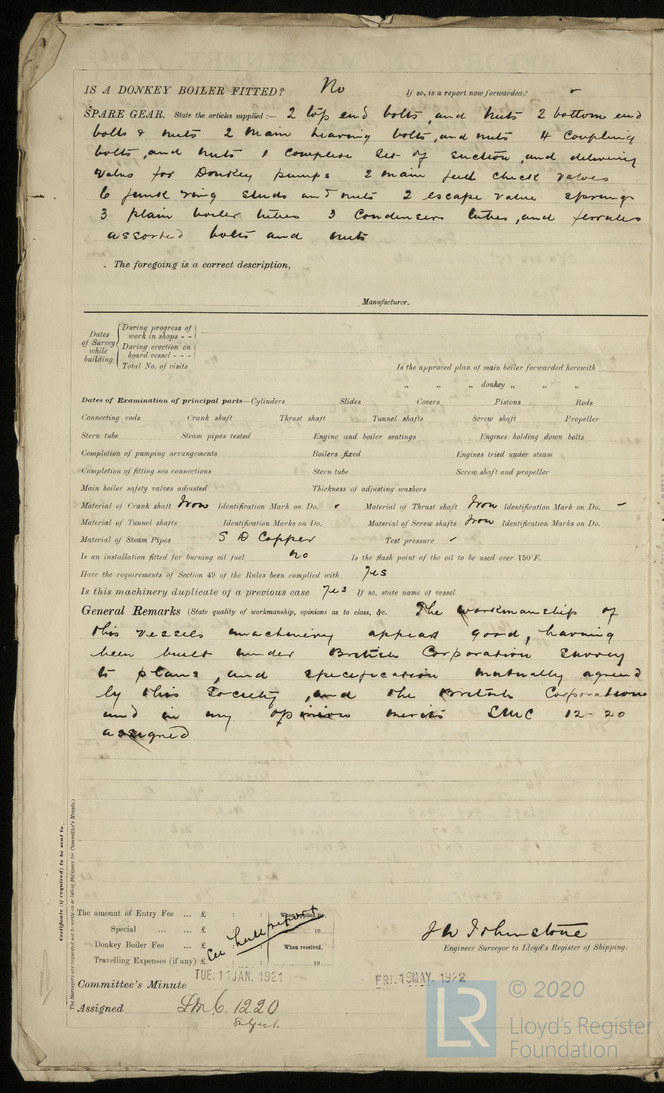 IS A DONKEY BOILER FITTED? No If so, is a report now forwarded?
SPARE GEAR. State the articles supplied :— 2 top end bolts, and nuts 2 bottom end
bolts & nuts 2 main bearing bolts, and nuts 4 coupling
bolts, and nuts 1 complete set of suction, and delivery
valves for Donkey pumps 2 main feed check valves
6 junk ring studs and nuts 2 escape valve springs
3 plain boiler tubes 3 condensers tubes, and ferrules
assorted bolts and nuts
The foregoing is a correct description,
Manufacturer.
Dates of Survey while building
During progress of work in shops - -
During erection on board vessel - - -
Total No. of visits
Is the approved plan of main boiler forwarded herewith
" " " donkey " " "
Dates of Examination of principal parts—Cylinders Slides Covers Pistons Rods
Connecting rods Crank shaft Thrust shaft Tunnel shafts Screw shaft Propeller
Stern tube Steam pipes tested Engine and boiler seatings Engines holding down bolts
Completion of pumping arrangements Boilers fixed Engines tried under steam
Completion of fitting sea connections Stern tube Screw shaft and propeller
Main boiler safety valves adjusted Thickness of adjusting washers
Material of Crank shaft Iron Identification Mark on Do. Material of Thrust shaft Iron Identification Mark on Do.
Material of Tunnel shafts Identification Marks on Do. Material of Screw shafts Iron Identification Marks on Do.
Material of Steam Pipes S D Copper Test pressure
Is an installation fitted for burning oil fuel no Is the flash point of the oil to be used over 150°F.
Have the requirements of Section 49 of the Rules been complied with Yes
Is this machinery duplicate of a previous case Yes If so, state name of vessel
General Remarks (State quality of workmanship, opinions as to class, &c. The workmanship of
this vessels machinery appears good, having
been built under British Corporation Survey
to plans, and specification mutually agreed
by this Society, and the British Corporation
and in my opinion merits LMC 12-20
assigned
Certificate (if required) to be sent to
The Surveyors are requested not to write on or below the space for Committee's Minute.
The amount of Entry Fee ... £ : : When applied for.
Special ... ... £ : : 19
Donkey Boiler Fee ... £ : : When received.
Travelling Expenses (if any) £ : : 19
See hull report
J W Johnstone
Engineer Surveyor to Lloyd's Register of Shipping.
Committee's Minute TUE. 11 JAN. 1921 FRI. 19 MAY. 1922
Assigned LMC. 12.20
Subject.
LR
© 2020
Lloyd's Register
Foundation